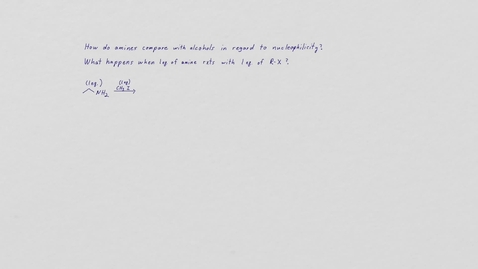 How do amines compare with alcohols in regard to nucleophilicity?
What happens when 1 eq of amine rxts with 1 eq. of R-X?
(1 eq.) (1 eq)
NH2 CH3 I